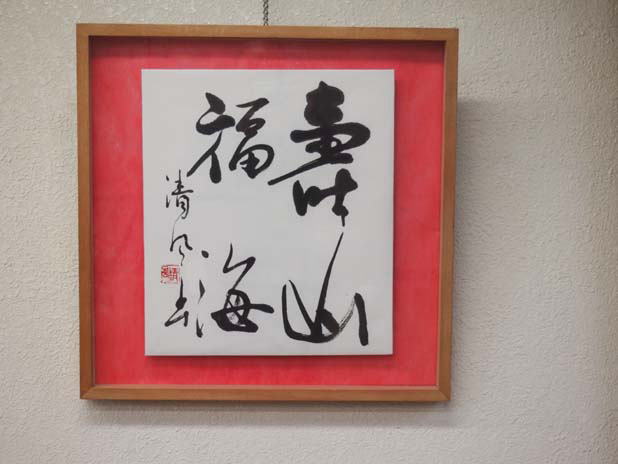 壽山
福海
清風書